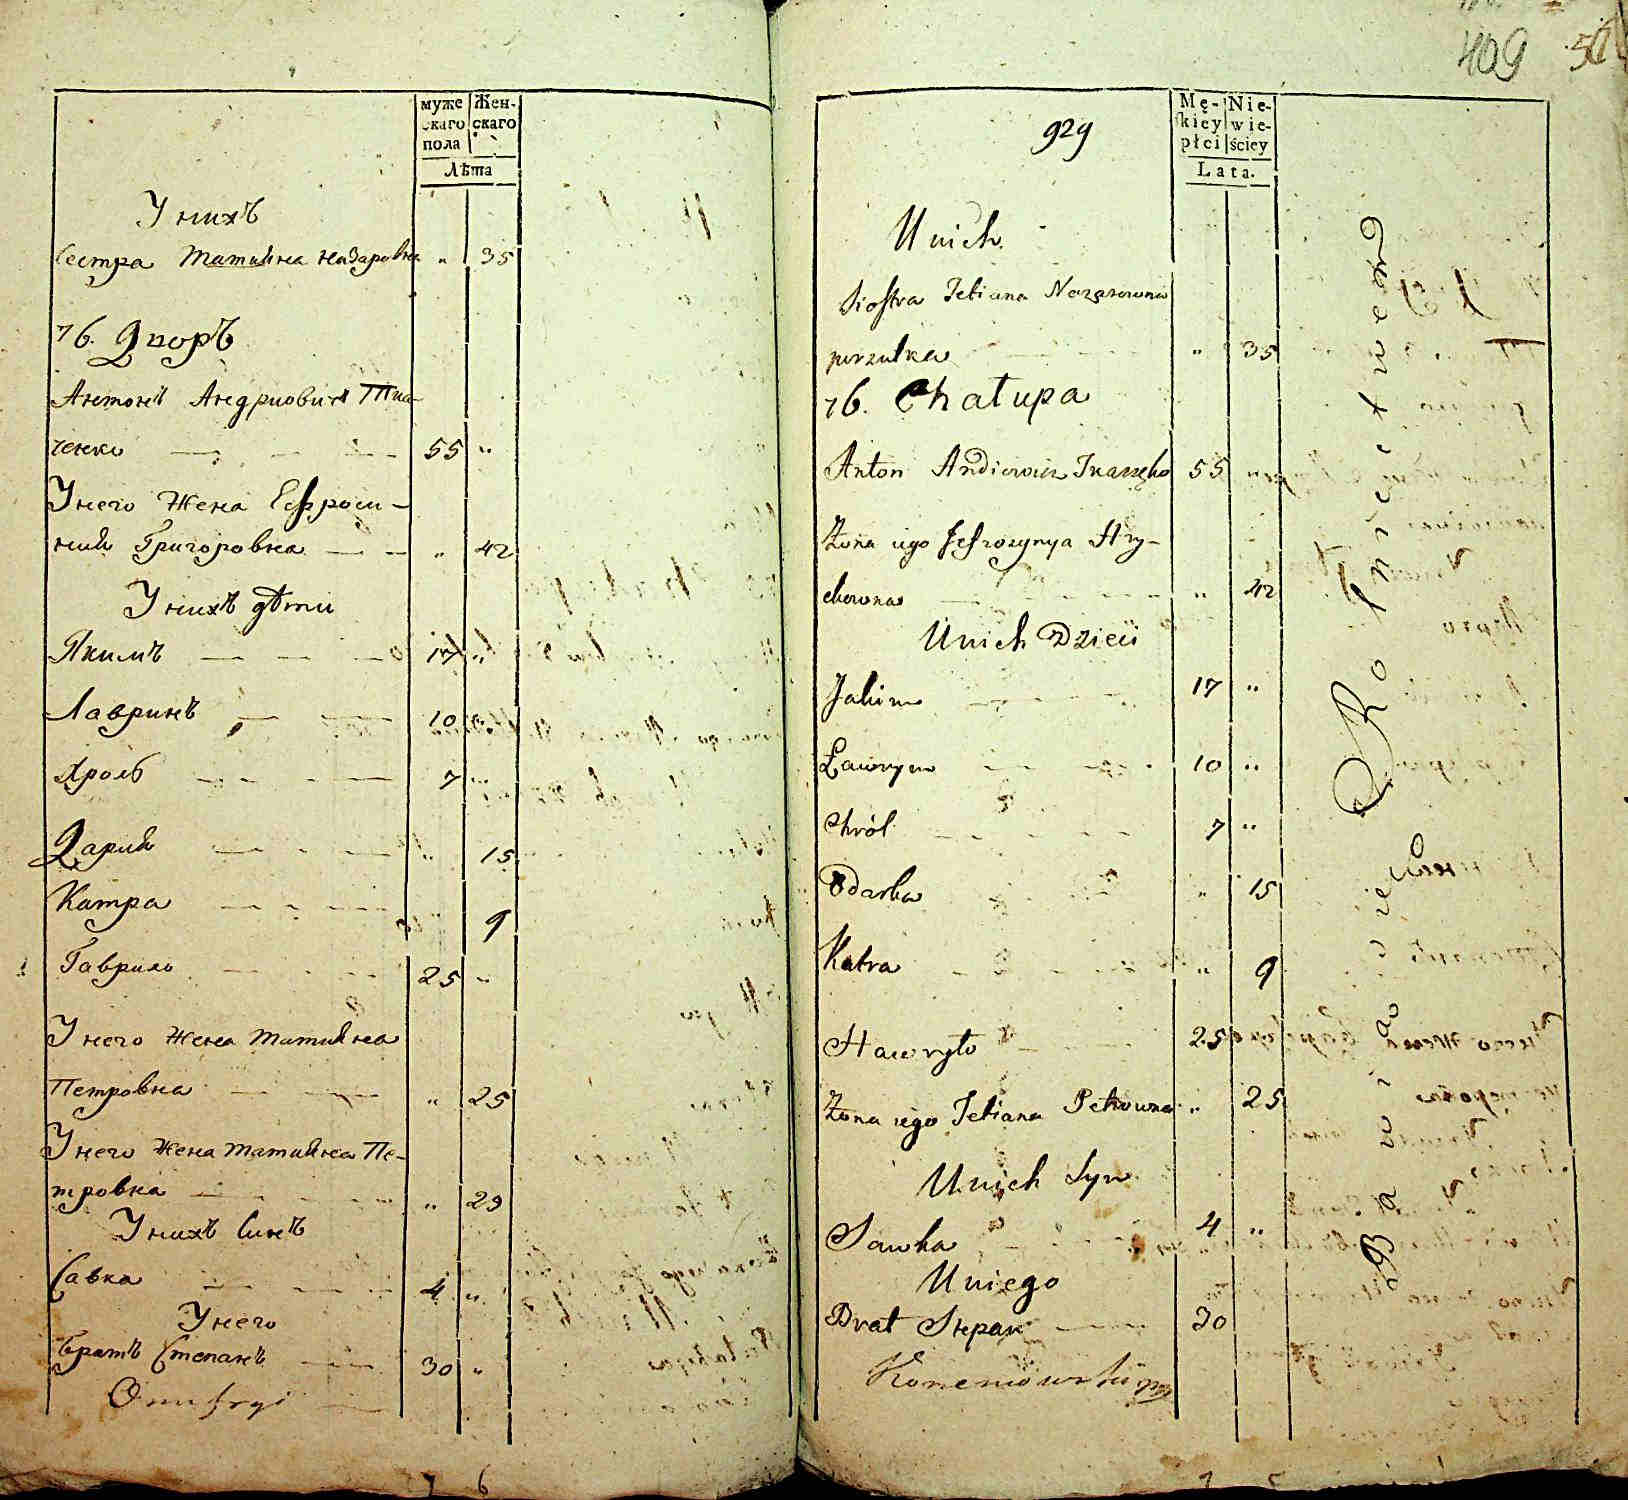 409
муже
скаго
пола
Жен-
скаго
Лѣта
У нихъ
Сестра Татияна Назаровна " 35
76. Дворъ
Антонъ Андриовичъ Тка-
ченко 55 "
У него Жена Ефроси-
ния Григоровна " 42
У нихъ дѣти
Якимъ 17 "
Лавринъ 10 "
Хроль 7 "
Дария " 15
Катра " 9
Гаврило 25 "
У него Жена Татияна
Петровна " 25
У него Жена Татияна Пе-
тровна " 29
У нихъ Синъ
Савка 4 "
У него
Братъ Степанъ 30 "
Onufryi
7 6
929
Mę-
skiey
płci
Nie-
wie-
ściey
Lata.
U nich
Siostra Tetiana Nazarowna
" 35
76. Chałupa
Anton Andiowicz Tkaczęko 55 "
Żona iego Jefrozynya Hry-
chowna " 42
U nich Dzieci
Jakim 17 "
Ławryn 10 "
Chról 7 "
Odarka " 15
Katra " 9
Hawryło 25
Żona iego Tetiana Petrowna " 25
U nich Syn
Sawka 4 "
U niego
Brat Stepan 30